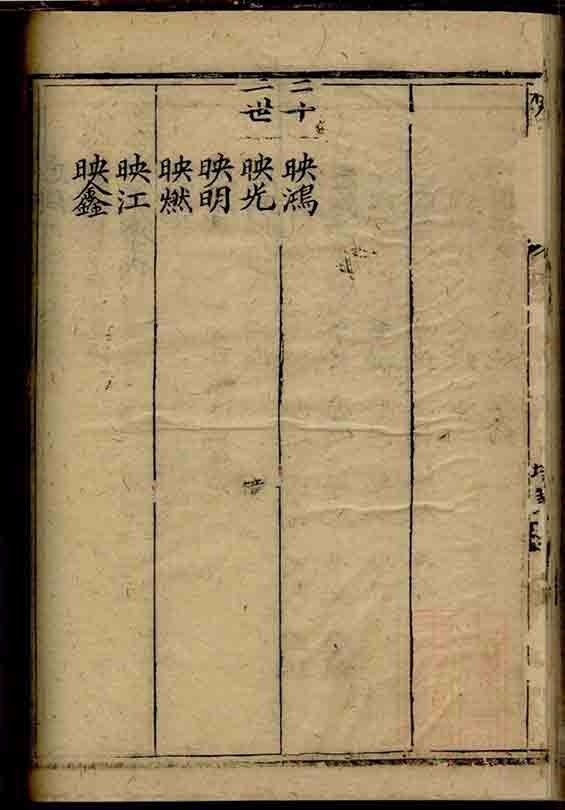 二十
二世
映鴻
映光
映明
映燃
映江
映鑫